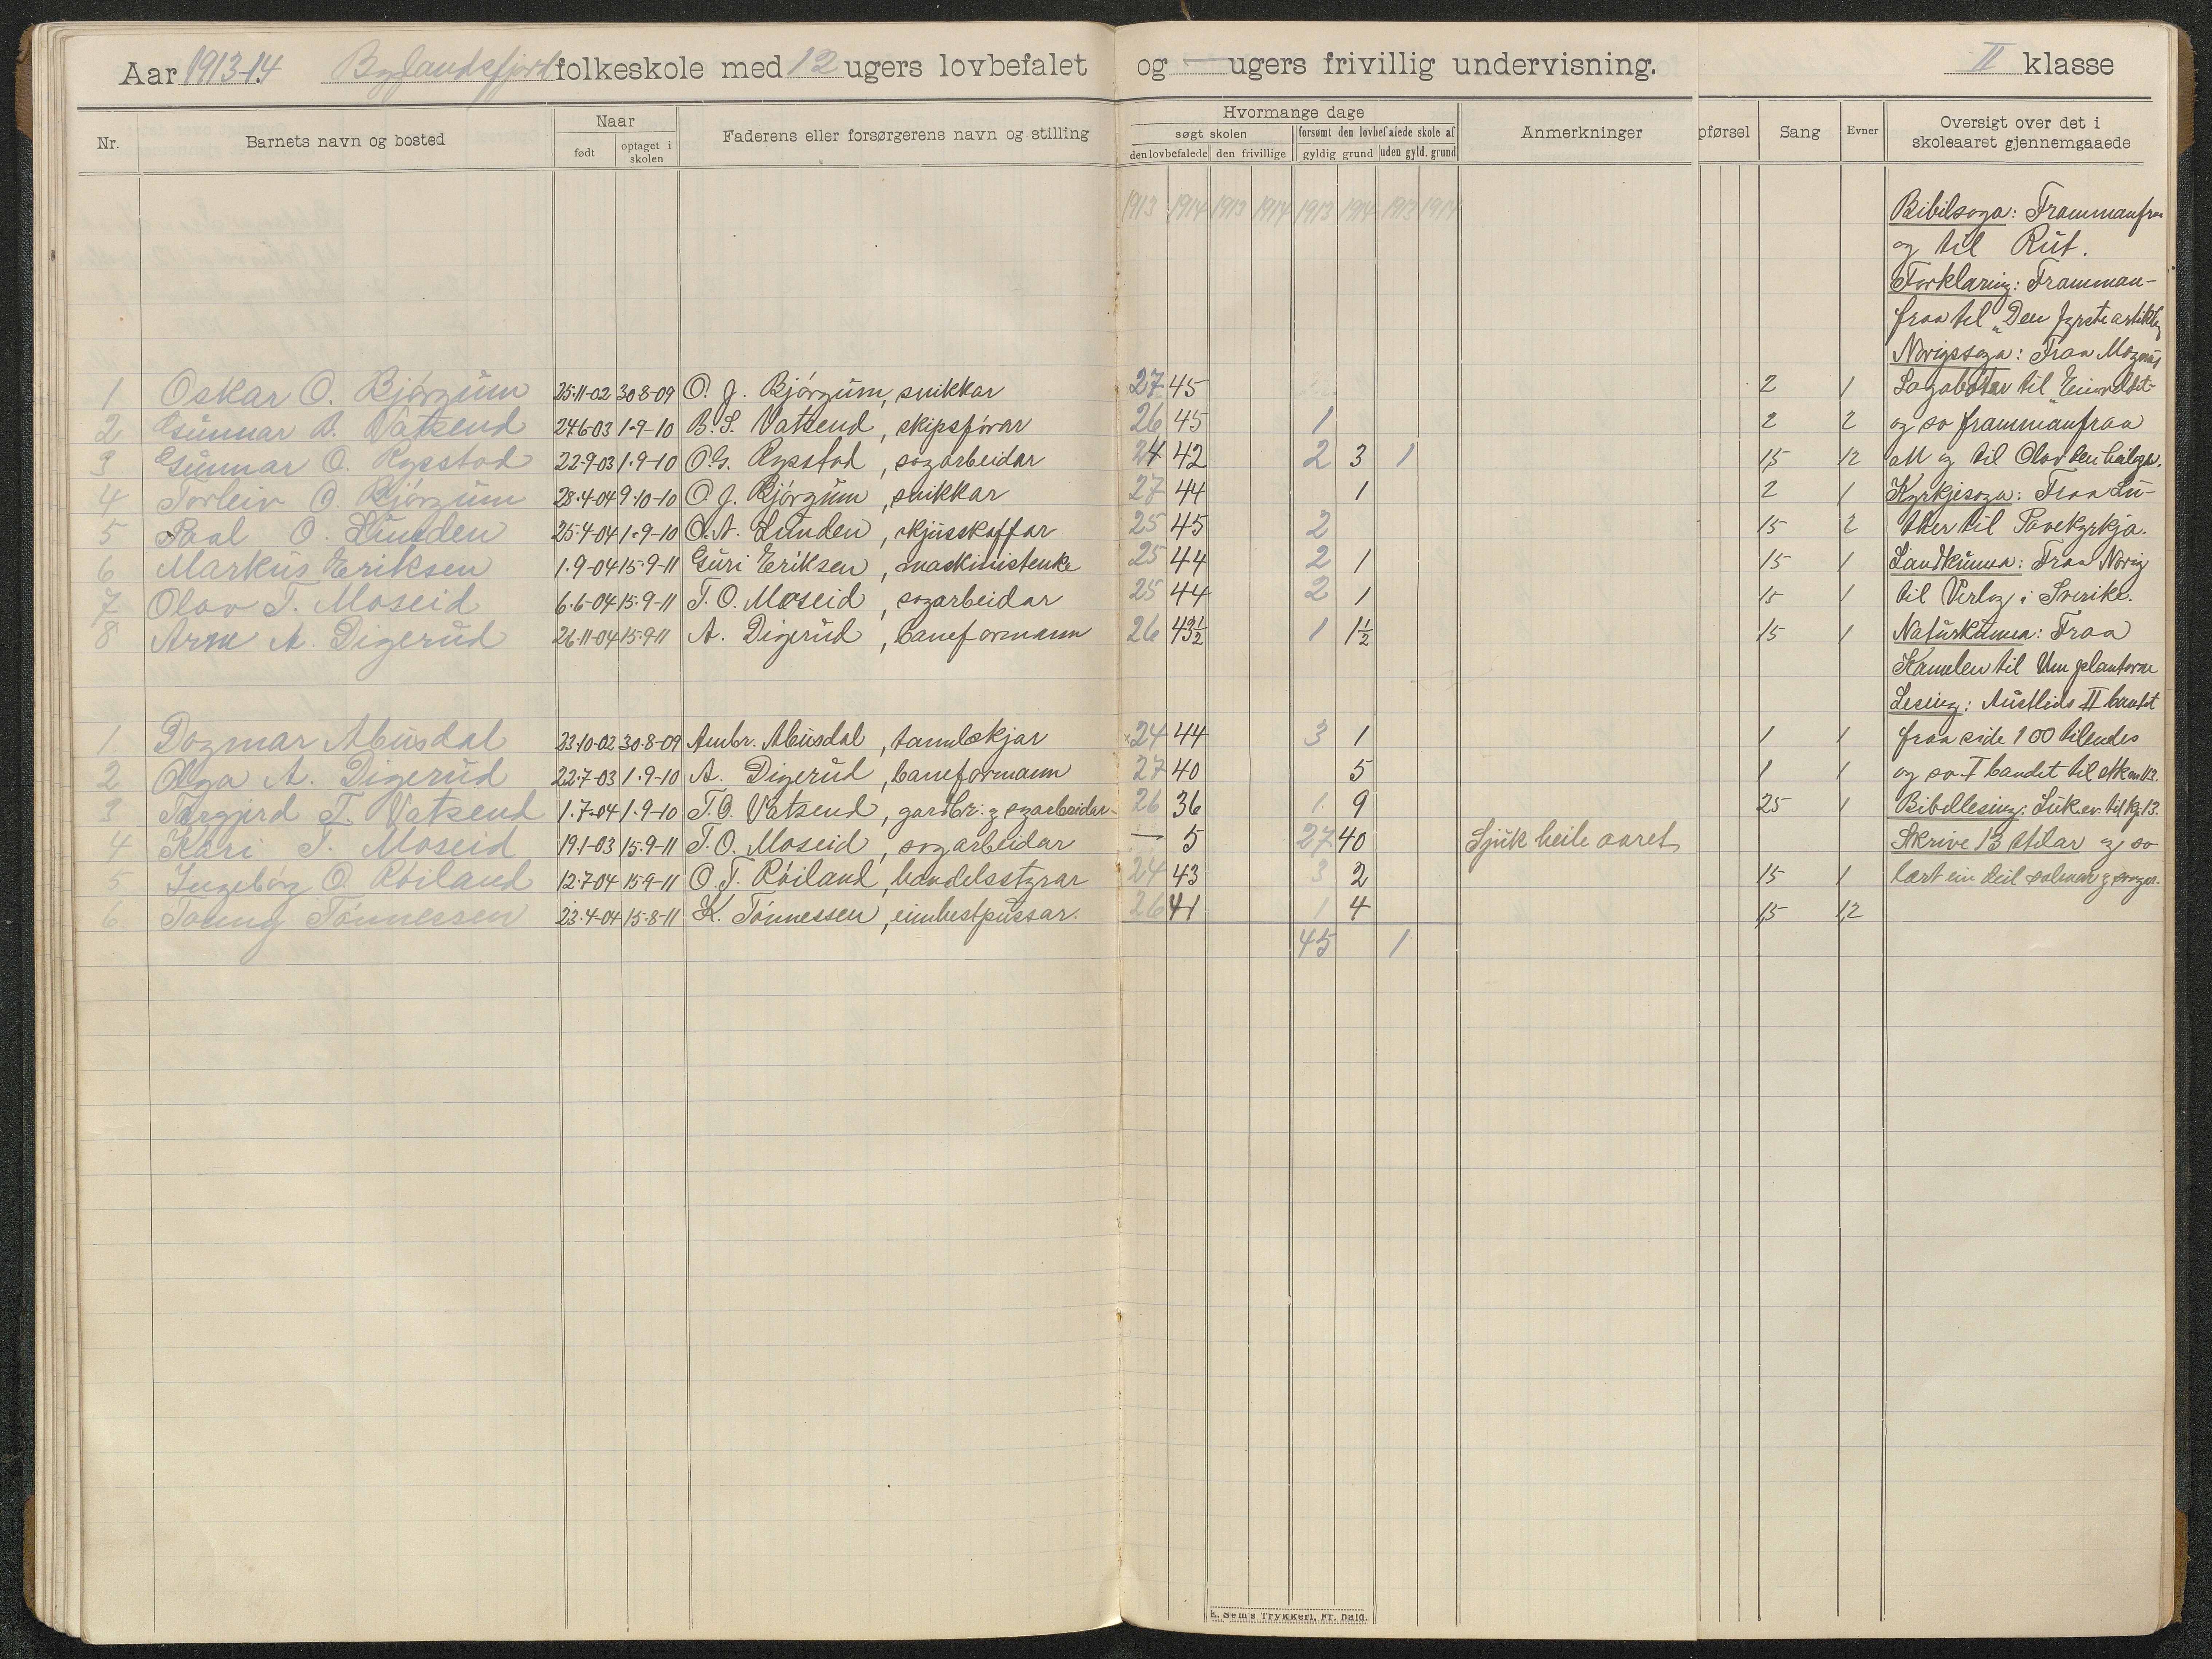 Aar 1913-14 Byglandsfjord folkeskole med 12 ugers lovbefalet og — ugers frivillig undervisning. II klasse
Nr. Barnets navn og bosted Naar født optaget i skolen Faderens eller forsørgerens navn og stilling Hvormange dage søgt skolen den lovbefalede den frivillige forsømt den lovbefalede skole af gyldig grund uden gyld. grund Anmerkninger pførsel Sang Evner Oversigt over det i skoleaaret gjennemgaaede
1913 1914 1913 1914 1913 1914 1913 1914 Bibilsoga: Frammanfraa
og til Rut.
Forklaring: Framman-
fraa til „Den fyrste artikkel
Norigssoga: Fraa Magnus
1 Oskar O. Bjórgum 25-11-02 30-8-09 O. J. Bjórgum, snikkar 27 45 2 1 Lagabøtar til „Einveldet"
2 Gunnar B. Vatsend 24-6-03 1-9-10 B. S. Vatsend, skipsfórar 26 45 1 2 2 og so frammanfraa
3 Gunnar O. Rysstad 22-9-03 1-9-10 O.G. Rysstad, sagarbeidar 24 42 2 3 1 1,5 1,2 att og til Olav den heilage.
4 Torleiv O. Bjórgum 28-4-04 9-10-10 O. J. Bjórgum, snikkar 27 44 1 2 1 Kyrkjesoga: Fraa Lu-
5 Paal O. Lunden 25-4-04 1-9-10 O. N. Lunden, skjusskaffar 25 45 2 1,5 2 ther til Pavekyrkja.
6 Markus Eriksen 1-9-04 15-9-11 Guri Eriksen, maskinistenke 25 44 2 1 1,5 1 Landkunna: Fraa Norig
7 Olav T. Moseid 6-6-04 15-9-11 T. O. Moseid, sagarbeidar 25 44 2 1 1,5 1 til Verlag i Sverike.
8 Arne A. Digerud 26-11-04 15-9-11 A. Digerud, baneformann 26 43½ 1 1½ 1,5 1 Naturkunna: Fraa
Kamelen til Um plantorne
Lesing: Austlids II bandet
1 Dagmar Abusdal 23-10-02 30-8-09 Ambr. Abusdal, tannlækjar 24 44 3 1 1 1 fraa side 100 til endes
2 Olga A. Digerud 22-7-03 1-9-10 A. Digerud, baneformann 27 40 5 1 1 og so I bandet til
3 Torgjerd T. Vatsend 1-7-04 1-9-10 T. O. Vatsend, gardbr. og sagarbeidar 26 36 1 9 2,5 1 Bibellesing: Luk. ev. til kp. 13.
4 Kari T. Moseid 19-1-03 15-9-11 T. O. Moseid, sagarbeidar — 5 27 40 Sjuk heile aaret Skrive 13 stilar og so
5 Ingebórg O. Róiland 12-7-04 15-9-11 O. T. Róiland, handelsstyrar 24 43 3 2 1,5 1 lært ein deil salmar og songar.
6 Tónnessen 23-4-04 15-8-11 K. Tónnessen, eimhestpussar. 26 41 1 4 1,5 1,2
45 1
E. Sem's Trykkeri, Fr. hald.